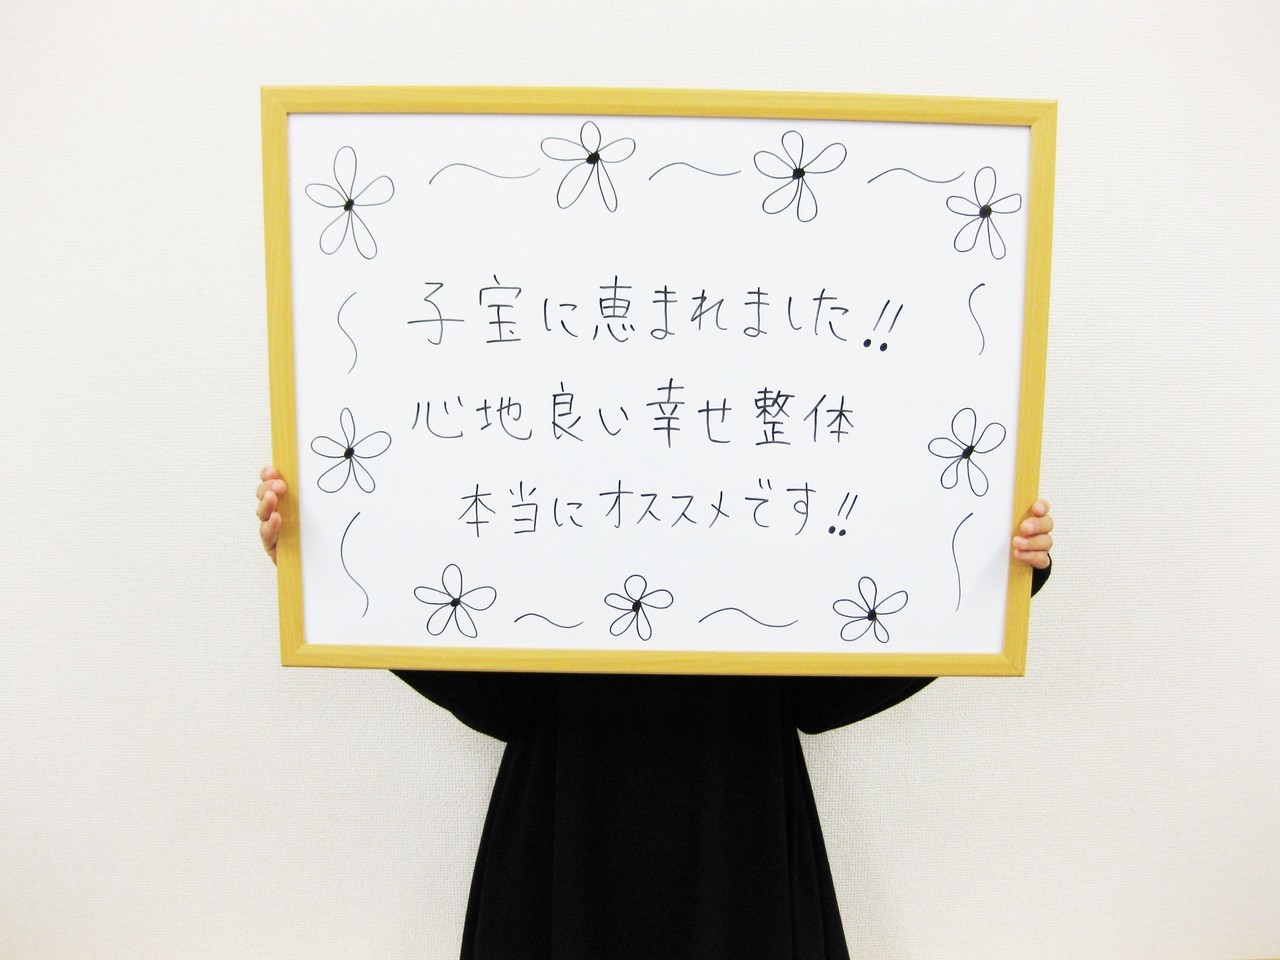 子宝に恵まれました!!
心地良い幸せ整体
本当にオススメです!!